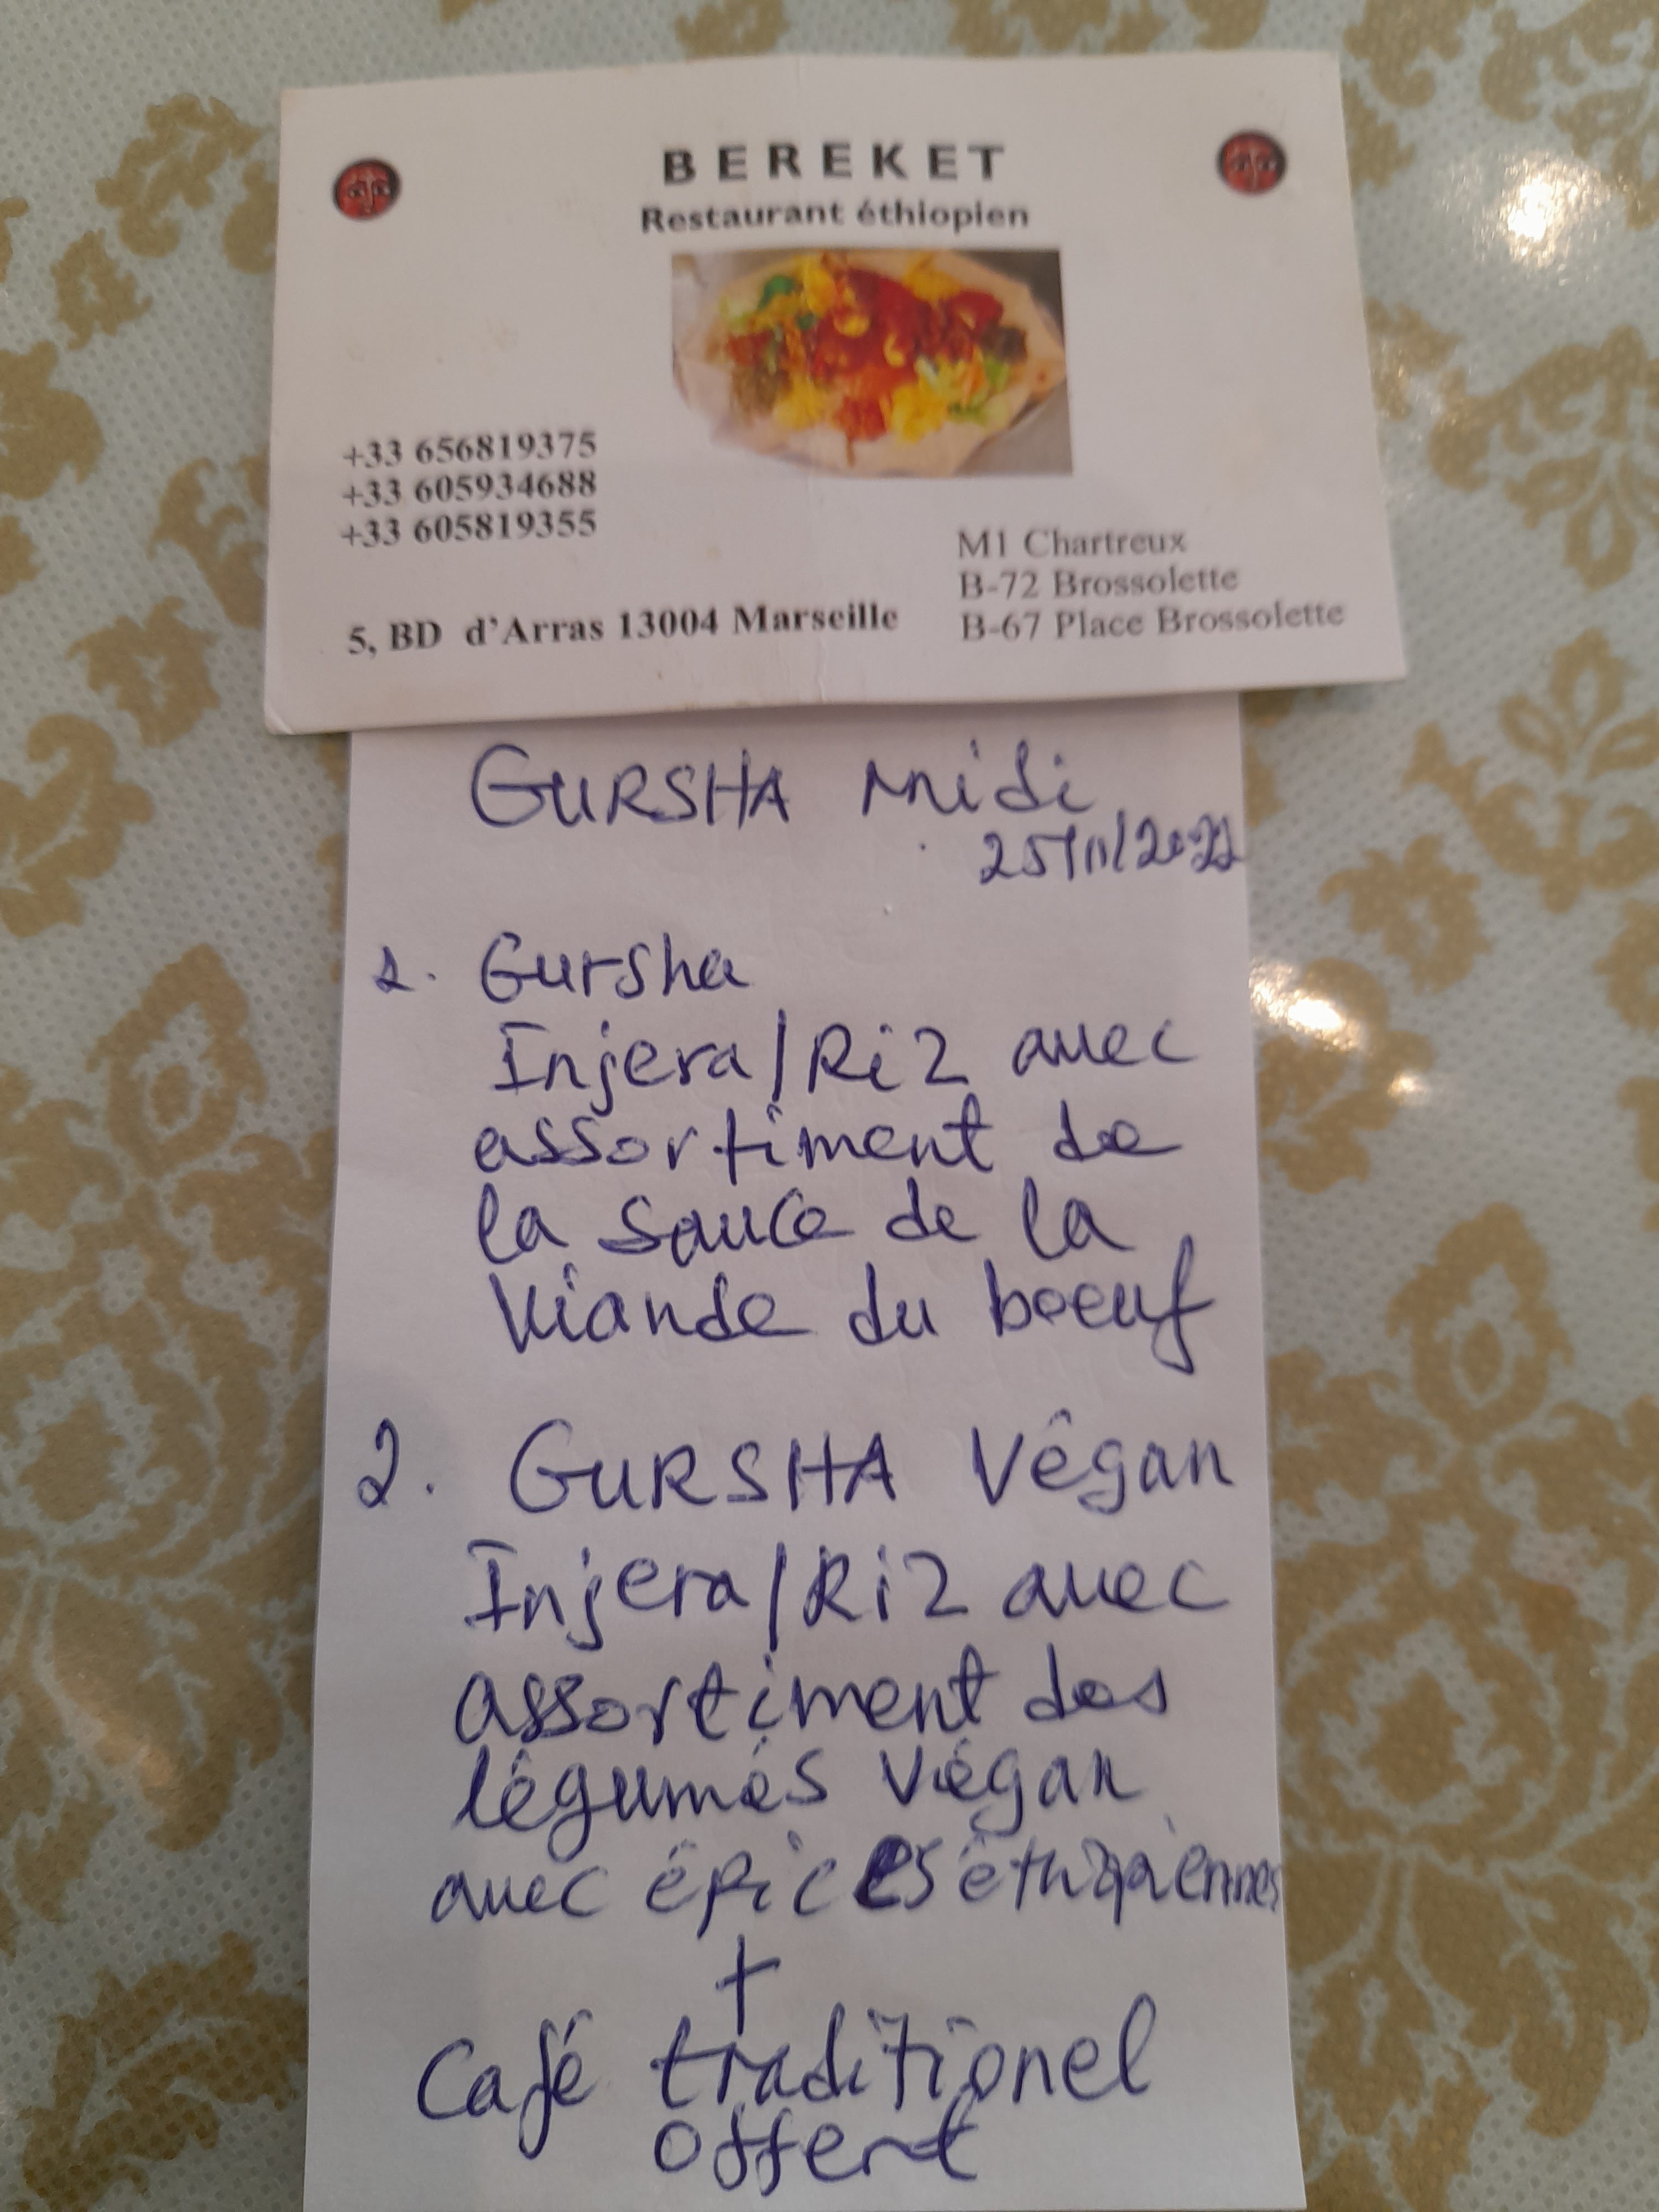 BEREKET
Restaurant éthiopien
+33 656819375
+33 605934688
+33 605819355
5, BD d'Arras 13004 Marseille
M1 Chartreux
B-72 Brossolette
B-67 Place Brossolette
GURSHA midi
25/11/2022
1. Gursha
Injera/Riz avec
assortiment de
la sauce de la
viande du boeuf
2. GURSHA Végan
Injera/Riz avec
assortiment des
légumes végan
avec épices éthiopiennes
+
Café traditionel
offert